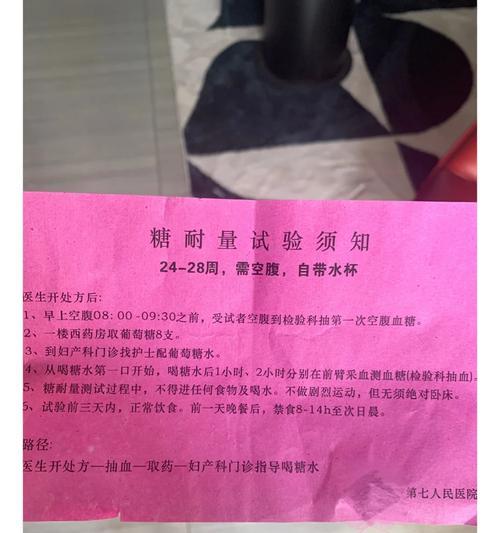 糖耐量试验须知
24-28周，需空腹，自带水杯
医生开处方后：
1、早上空腹08：00-09:30之前，受试者空腹到检验科抽第一次空腹血糖。
2、一楼西药房取葡萄糖8支。
3、到妇产科门诊找护士配葡萄糖水。
4、从喝糖水第一口开始，喝糖水后1小时、2小时分别在前臂采血测血糖(检验科抽血)。
5、糖耐量测试过程中，不得进任何食物及喝水。不做剧烈运动，但无须绝对卧床。
6、试验前三天内，正常饮食。前一天晚餐后，禁食8-14h至次日晨。
路径：
医生开处方—抽血—取药—妇产科门诊指导喝糖水
第七人民医院